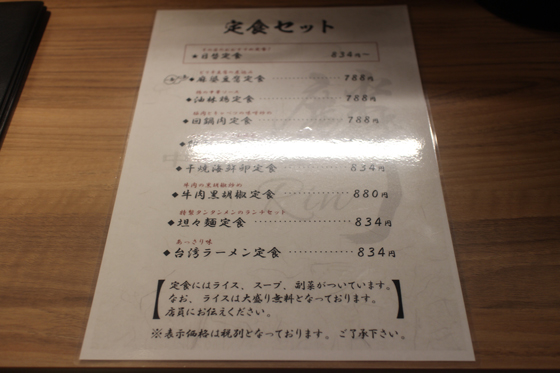 定食セット
◆日替定食 834円〜
◆麻婆豆腐定食 788円
◆油林鶏定食 788円
◆回鍋肉定食 788円
◆干焼海鮮卵定食 834円
牛肉の黒胡椒炒め
◆牛肉黒胡椒定食 880円
特製タンタンメンのランチセット
◆坦々麺定食 834円
あっさり味
◆台湾ラーメン定食 834円
定食にはライス、スープ、副菜がついています。
なお、ライスは大盛り無料となっております。
店員にお伝えください。
※表示価格は税別となっております。ご了承下さい。